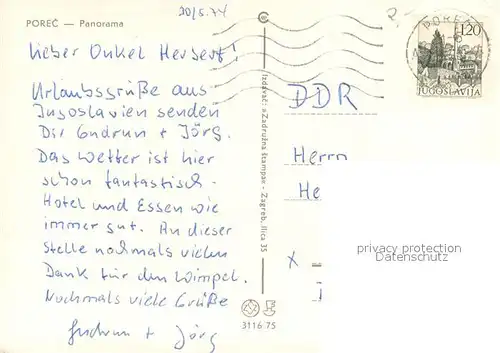 POREČ — Panorama
20/5.74
Lieber Onkel Herbert!
Urlaubsgrüße aus
Jugoslavien senden
Dir Gudrun + Jörg.
Das Wetter ist hier
schon fantastisch -
Hotel und Essen wie
immer gut. An dieser
Stelle nochmals vielen
Dank für den Wimpel.
Nochmals viele Grüße
Gudrun + Jörg
Izdavač: »Zadružna štampa« - Zagreb, Ilica 35
3116 75
POREČ
1.20
JUGOSLAVIJA
DDR
Herrn
He
privacy protection
Datenschutz